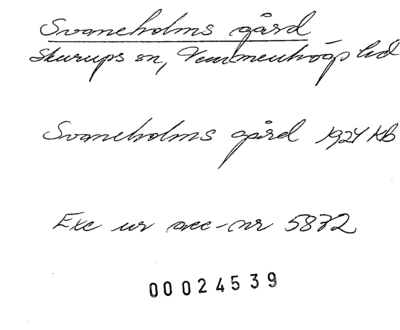 Svaneholms gård
Skurups sn, Vemmenhögs hd
Svaneholms gård 1924 Kb
Exc ur acc-nr 5872
00024539